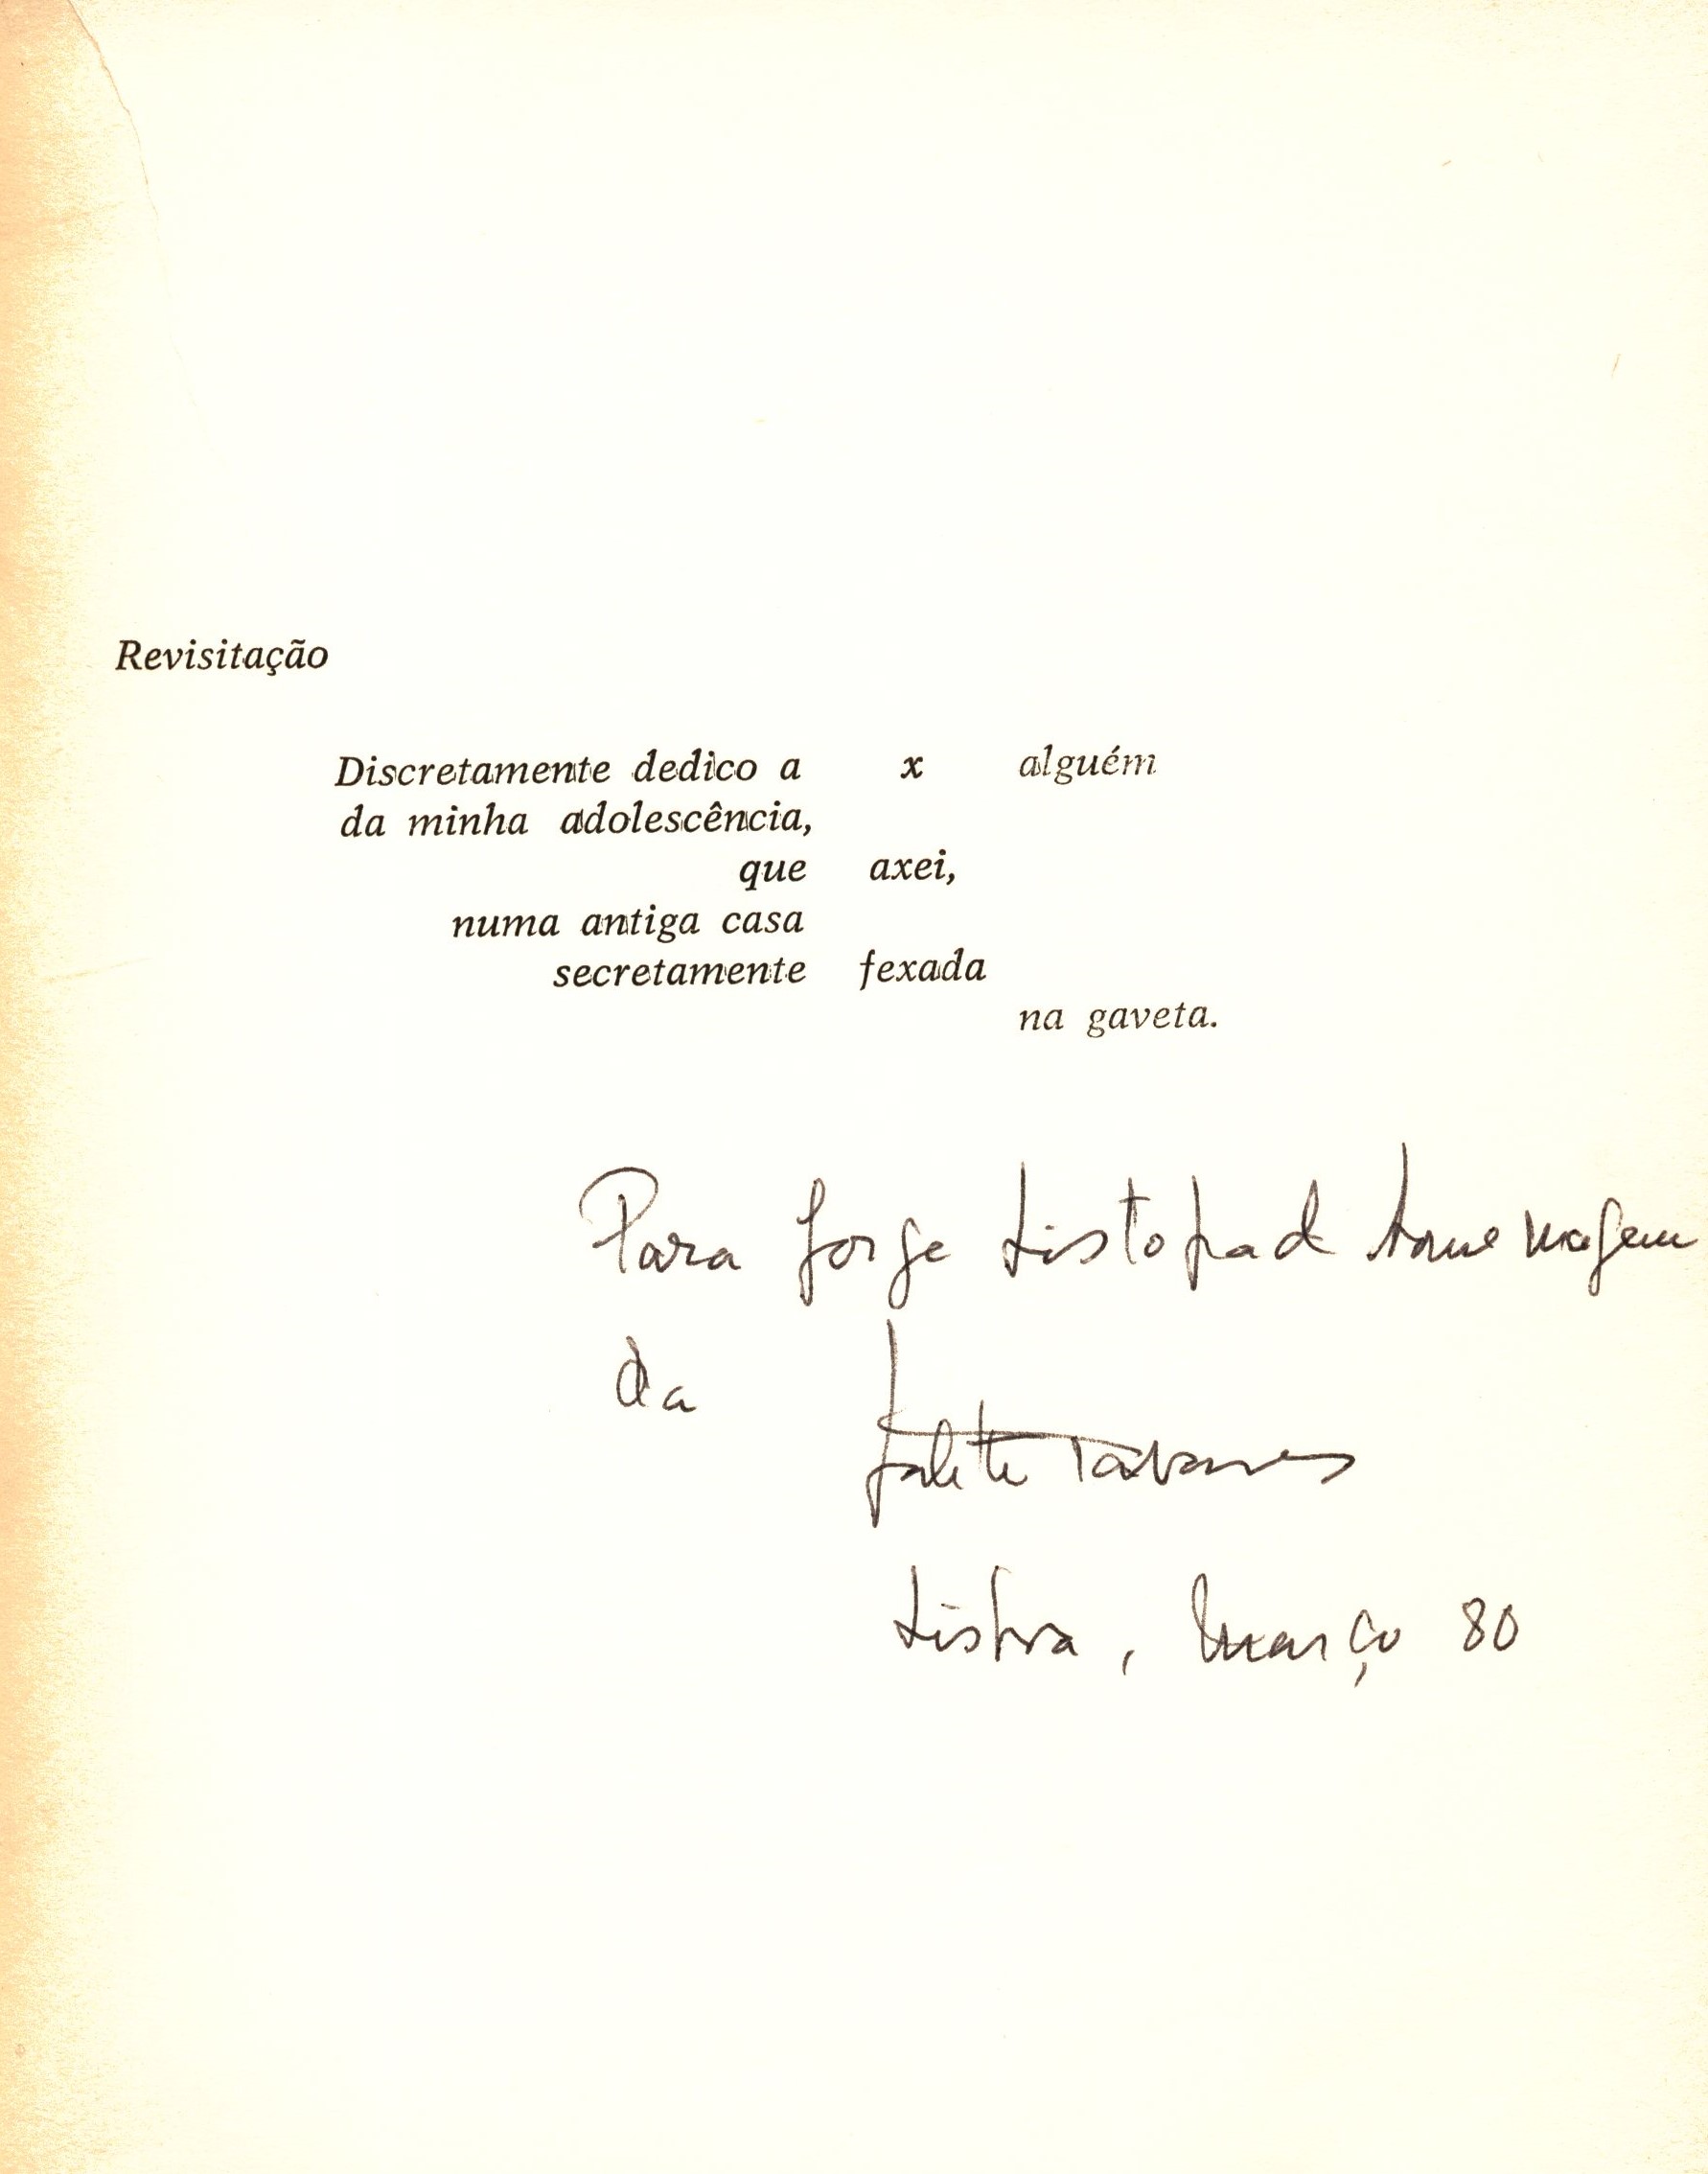 Revisitação
Discretamente dedico a x alguém
da minha adolescência,
que axei,
numa antiga casa
secretamente fexada
na gaveta.
Para Jorge Listopad homenagem
da
Salette Tavares
Lisboa, Março 80